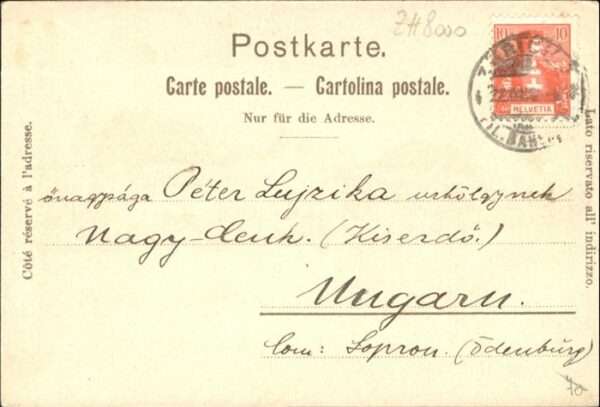 ZH8000
Postkarte.
Carte postale. — Cartolina postale.
Nur für die Adresse.
10 10
HELVETIA
ZÜRICH
Côté réservé à l'adresse.
Lato riservato all' indirizzo.
önagysága Péter Lujzika urhölgynek
Nagy-Cenk. (Kiserdő.)
Ungarn.
Com: Sopron. (Ödenburg)
70